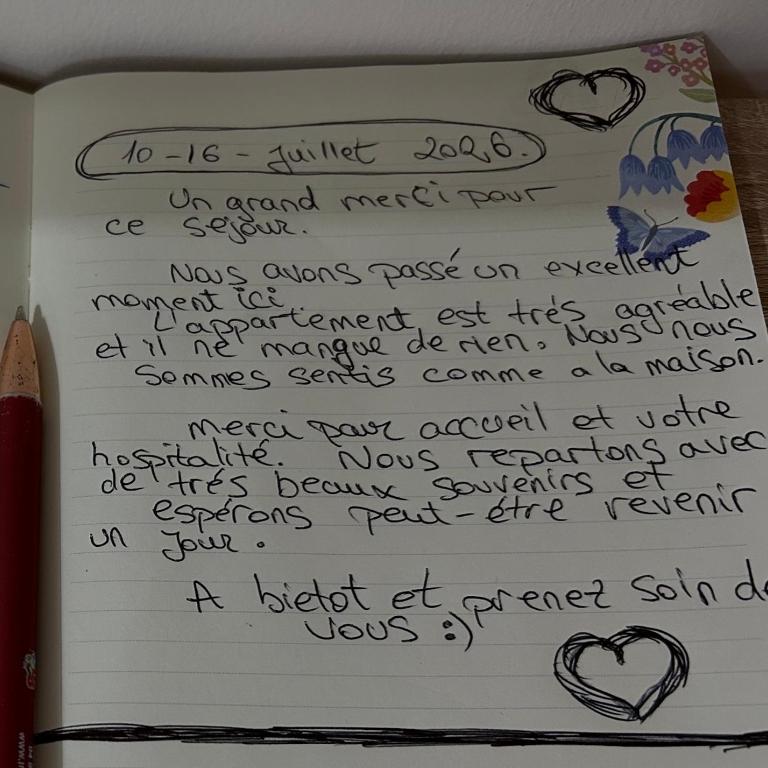 10-16-Juillet 2026.
Un grand merci pour
ce séjour.
Nous avons passé un excellent
moment ici.
L'appartement est trés agréable
et il ne mangue de rien. Nous nous
sommes sentis comme a la maison.
merci pour accueil et votre
hospitalité. Nous repartons avec
de trés beaux souvenirs et
espérons peut-étre revenir
un jour.
A bietot et prenez soin de
vous :)